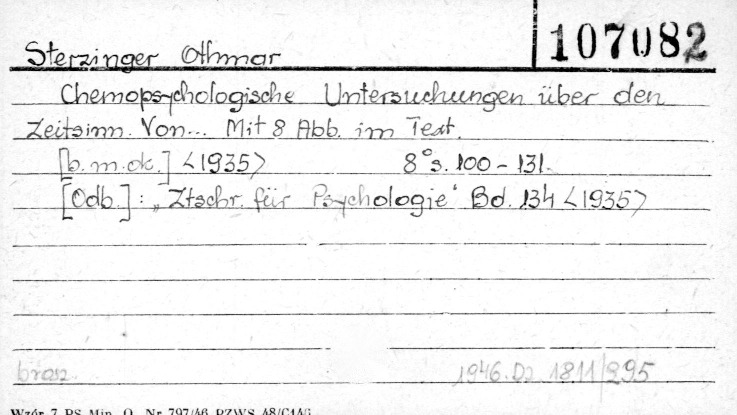 107082
Sterzinger Othmar
Chemopsychologische Untersuchungen über den
Zeitsinn. Von... Mit 8 Abb. im Text.
[b.m.dk.] <1935> 8° s. 100-131.
[Odb.]: „Ztschr. für Psychologie" Bd. 134 <1935>
brosz.
1946. Dz 1811/295
Wzór 7 PS Min. O. Nr 797/46 PZWS 48/C144